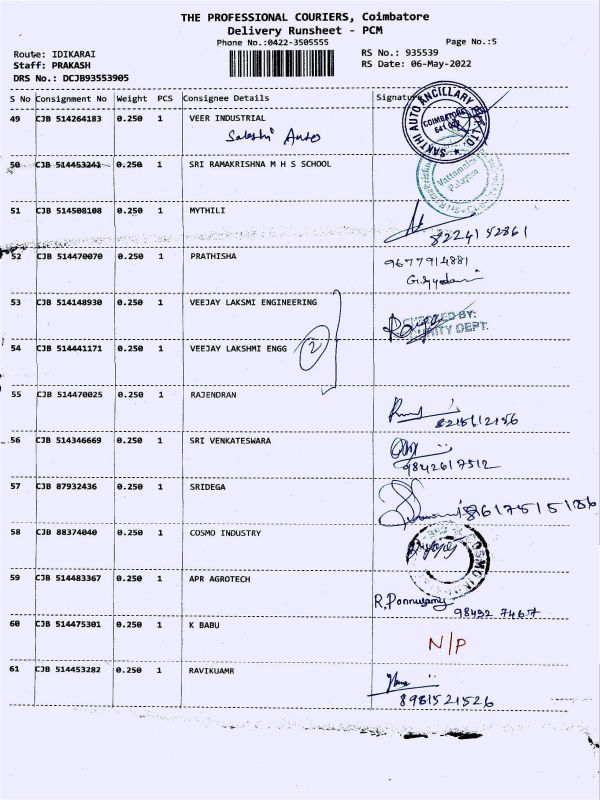 THE PROFESSIONAL COURIERS, Coimbatore
Delivery Runsheet - PCM
Phone No.:0422-3505555 Page No.:5
Route: IDIKARAI RS No.: 935539
Staff: PRAKASH RS Date: 06-May-2022
DRS No.: DCJB93553905
S No Consignment No Weight PCS Consignee Details Signature
49 CJB 514264183 0.250 1 VEER INDUSTRIAL
Sakthi Auto
SAKTHI AUTO ANCILLARY
COIMBATORE
50 CJB 514453241 0.250 1 SRI RAMAKRISHNA M H S SCHOOL
Vattamalai
Palayam
51 CJB 514508108 0.250 1 MYTHILI
8224152861
52 CJB 514470070 0.250 1 PRATHISHA 9677914881
53 CJB 514148930 0.250 1 VEEJAY LAKSMI ENGINEERING
BY:
DEPT.
54 CJB 514441171 0.250 1 VEEJAY LAKSHMI ENGG 2
55 CJB 514470025 0.250 1 RAJENDRAN
56 CJB 514346669 0.250 1 SRI VENKATESWARA
9842617512
57 CJB 87932436 0.250 1 SRIDEGA
58 CJB 88374040 0.250 1 COSMO INDUSTRY
59 CJB 514483367 0.250 1 APR AGROTECH
R. Ponnusamy
98432 7467
60 CJB 514475301 0.250 1 K BABU
N/P
61 CJB 514453282 0.250 1 RAVIKUAMR
8981521526